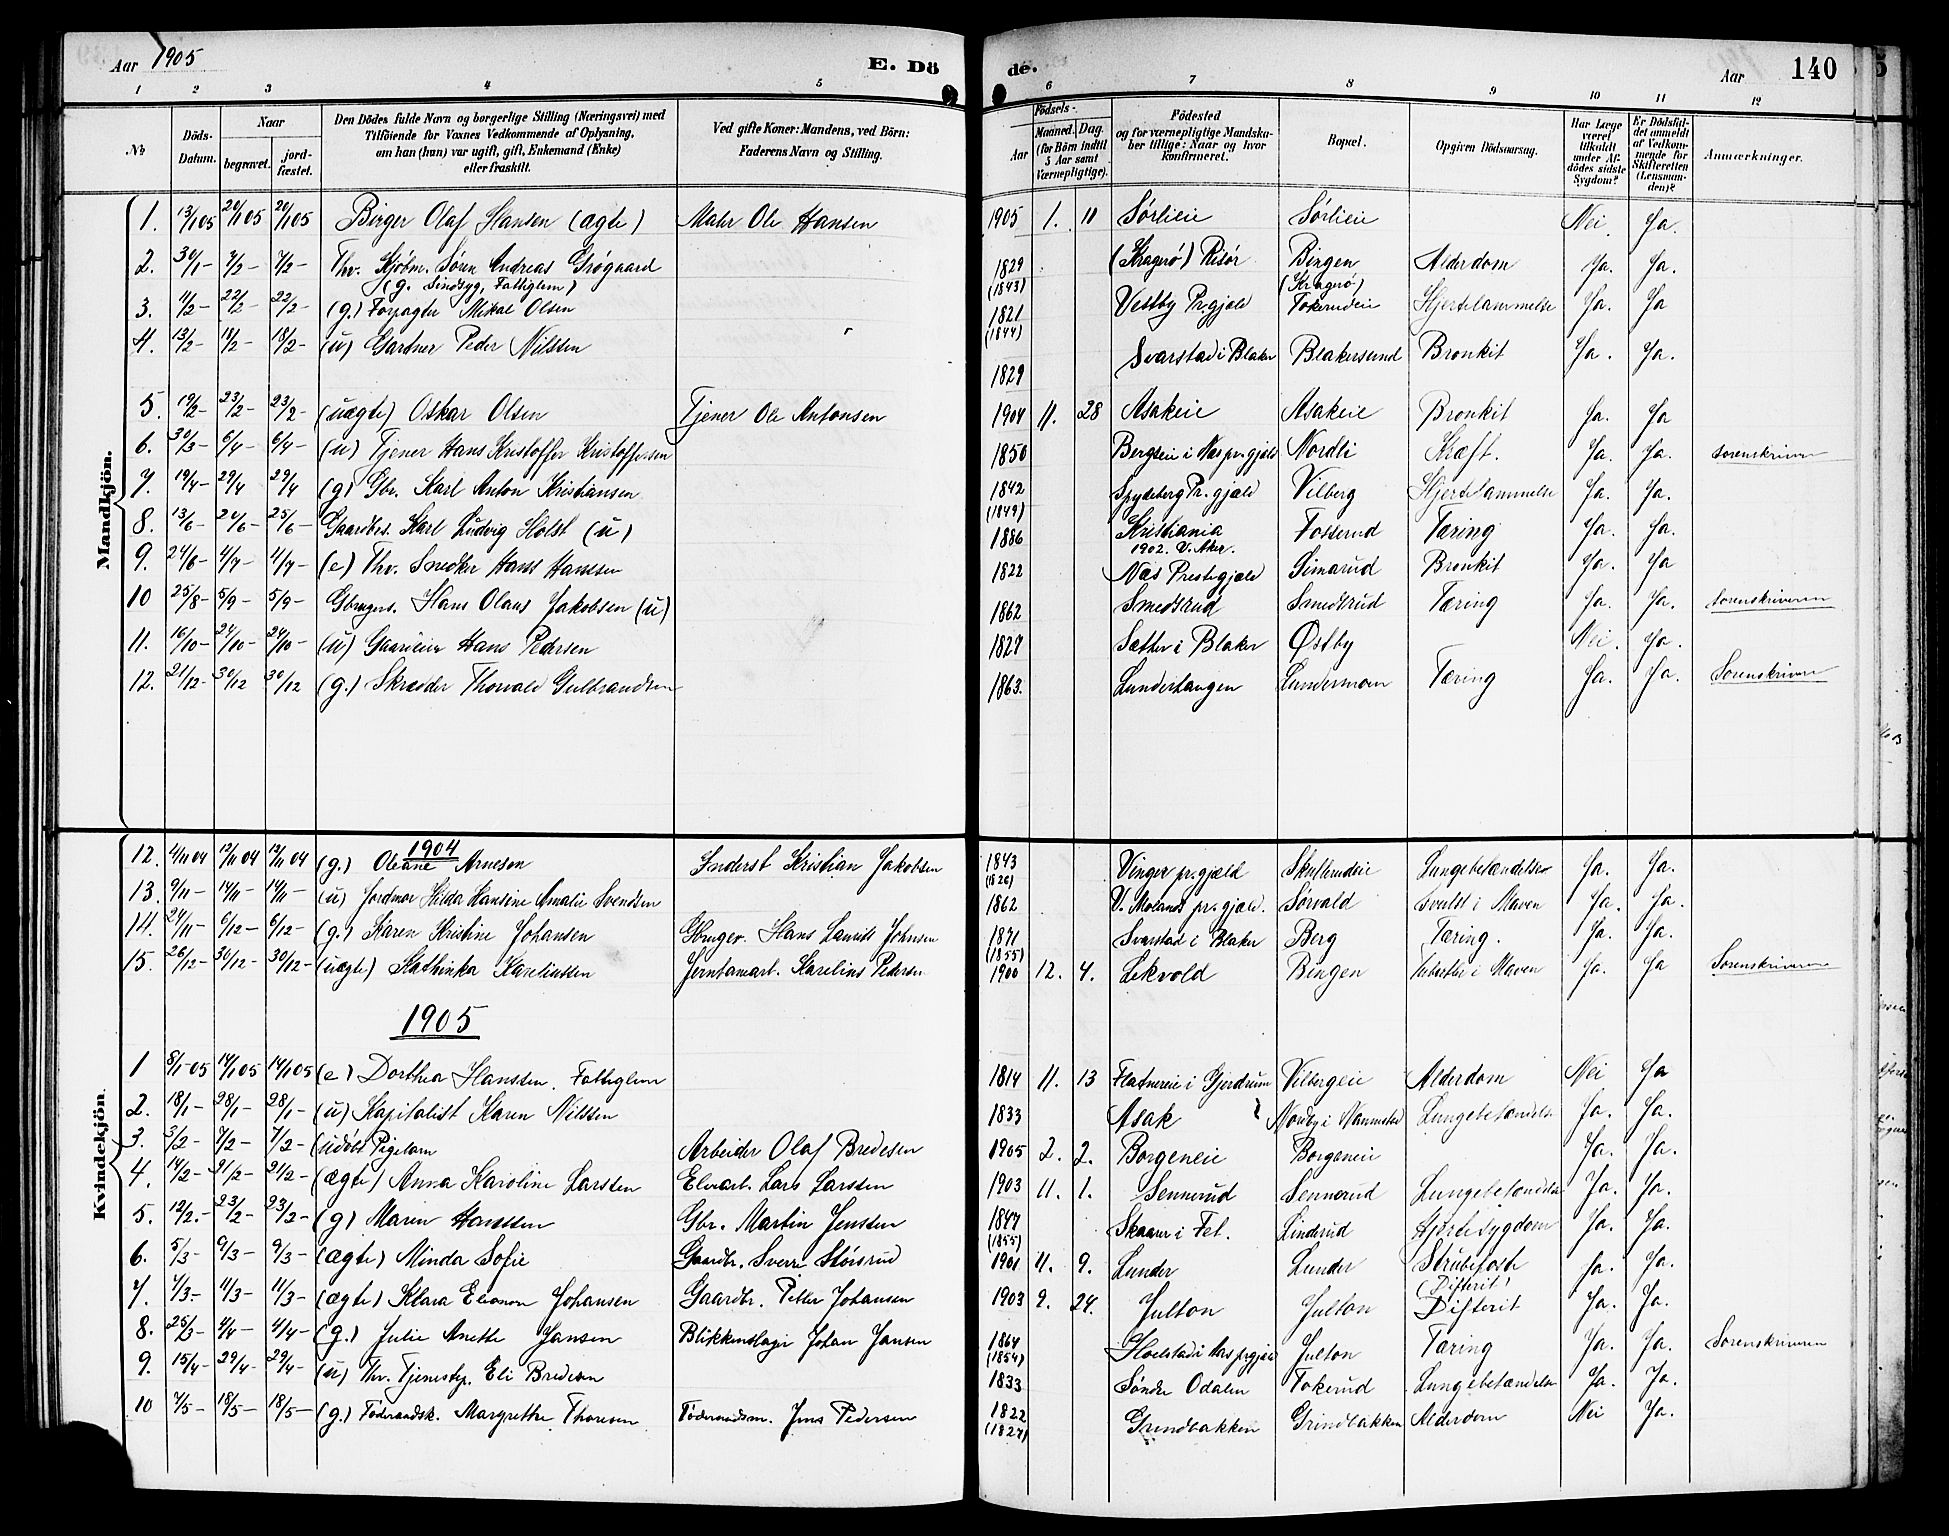 Aar 1905 E. Dö de. Aar 140
1 2 3 4 5 6 7 8 9 10 11 12
No Döds-Datum. Naar begravet. jord-fæstet. Den Dödes fulde Navn og borgerlige Stilling (Næringsvei) med Tilföiende for Voxnes Vedkommende af Oplysning, om han (hun) var ugift, gift, Enkemand (Enke) eller fraskilt. Ved gifte Koner: Mandens, ved Börn: Faderens Navn og Stilling. Födsels- Aar Maaned. Dag. (for Börn indtil 5 Aar samt Værnepligtige). Födested og for værnepligtige Mandskaber tillige: Naar og hvor konfirmeret. Bopæl. Opgiven Dödsaarsag. Har Læge været tilkaldt under Afdödes sidste Sygdom? Er Dödsfaldet anmeldt af Vedkommende for Skifteretten (Lensmanden)? Anmærkninger.
Mandkjön.
1. 13/1 05 20/1 05 20/1 05 Birger Olaf Hansen (ægte) Maler Ole Hansen 1905 1. 11 Sørlieie Sørlieie Nei Ja.
2. 30/1 - 7/2 - 7/2 - Thv. Kjöbm. Sören Andreas Grøgaard 1829 (Kragrø) Risør Bingen Alderdom Ja. Ja.
(g. Sindsyg, Fattiglem) (1843) (Kragrø)
3. 11/2 - 22/2 - 22/2 - (g.) Forpagter Mikal Olsen 1821 Vestby Pr.gjæld Tokerudeie Hjertelammelse Ja. Ja
(1844)
4. 13/2 - 18/2 - 18/2 - (u) Gartner Peder Nilssen 1829 Svarstad i Blaker Blakersund Bronkit Ja. Ja.
5. 19/2 - 23/2 - 23/2 - (uægte) Oskar Olsen Tjener Ole Antonsen 1904 11. 28 Asakeie Asakeie Bronkit Ja. Ja
6. 30/3 - 6/4 - 6/4 - (u) Tjener Hans Kristoffer Kristoffersen 1850 Bergseie i Næs pr.gjæld Nordli Kræft. Ja. Ja. Sorenskriveren
7. 19/4 - 29/4 29/4 (g) Gbr. Karl Anton Kristiansen 1842 Spydeberg Pr.gjæld Vilberg Hjertelammelse Ja. Ja.
(1849)
8. 13/6 20/6 - 25/6 - Gaardbes. Karl Ludvig Holst (u) 1886 Kristiania Fosserud Tæring Ja. Ja.
1902. V. Aker.
9. 24/6 - 4/7 - 4/7 - (e) Thv. Snedker Hans Hanssen 1822 Næs Prestegjæld Simarud Bronkit Ja. Ja
10 25/8 - 5/9 - 5/9 - Gbrugers. Hans Olaus Jakobsen (u) 1862 Smedsrud Smedsrud Tæring Ja. Ja. Sorenskriveren
11. 16/10 - 24/10 - 24/10 - (u) Hans Pedersen 1829 Sætter i Blaker Østby Nei. Ja.
12. 21/12 - 30/12 30/12 (g.) Skrædder Thorvald Gulbrandsen 1863. Lunderhaugen Lundermoen Tæring Ja. Ja. Sorenskriveren
Kvindekjön.
1904
12. 4/11 04 12/11 04 12/11 04 (g.) Oleane Arnesen Inderst Kristian Jakobsen 1843 Vinger pr.gjæld Skullerudeie Lungebetændelse Ja. Ja.
13. 9/11 - 14/11 - 14/11 - (u) Jordmor Hilda Hansine Amalie Svendsen 1862 V. Molands pr.gjæld. Sørvald Svulst i Maven Ja. Ja.
14. 24/11 - 6/12 - 6/12 - (g.) Karen Kristine Johansen Gbruger. Hans Lauritz Johnsen 1871 Svarstad i Blaker Berg Tæring. Ja. Ja.
(1855)
15. 26/12 - 30/12 - 30/12 - (uægte) Kathinka Karelinssen Jerntomtarb. Karelius Pedersen 1900 12. 4. Lekvold Bingen i Maven Ja. Ja Sorenskriveren
1905
1 8/1 - 05 14/1 05 14/1 05 (e) Dorthea Hanssen. Fattiglem 1814 11. 13 Flatnereie i Gjerdrum Vilbergeie Alderdom Nei Ja
2. 18/1 - 28/1 - 28/1 - (u) Kapitalist Karen Nilssen 1833 Asak Nordby i Nannestad Lungebetændelse Ja. Ja.
3. 3/2 - 7/2 - 7/2 - (udöbt Pigebarn Arbeider Olaf Bredesen 1905 2. 2. Borgeneie Borgeneie Ja. Ja.
4. 14/2 - 21/2 - 21/2 - (ægte) Anna Karoline Larssen Elvearb. Lars Larssen 1903 11. 1. Sennerud Sennerud Lungebetændelse Ja. Ja.
5. 12/2. - 23/2 - 23/2 - (g) Maren Hanssen Gbr. Martin Jenssen 1847 Skaarer i Fet. Linderud Hjertesygdom Ja. Ja.
(1855)
6. 5/3 - 9/3 - 9/3 - (ægte) Minda Sofie Gaardbr. Sverre Störsrud 1901 11. 9. Lunder Lunder Strubehoste Ja. Ja.
(Difterit)
7. 7/3. - 11/3 - 11/3 - (ægte) Klara Eleonore Johansen Gaardbr. Petter Johansen 1903 9. 24. Julton Julton Difterit Ja. Ja.
8. 25/3 - 4/4 - 4/4 - (g.) Julie Anette Jansen Blikkenslager Johan Jansen 1864 Hvelstad i Næs pr.gjæld Julton Tæring Ja. Ja. Sorenskriveren
(1854)
9. 15/4 - 29/4 - 29/4 - (u) Thv. Tjenestep. Eli Bredesen 1833 Søndre Odalen Tokerud Lungebetændelse Ja. Ja.
10 7/5 - 18/5 - 18/5 - (g.) Föderaadsk. Margrethe Thoresen Föderaadsm. Jens Pedersen 1822 Grindbakken Grindbakken Alderdom Nei Ja.
(1827)